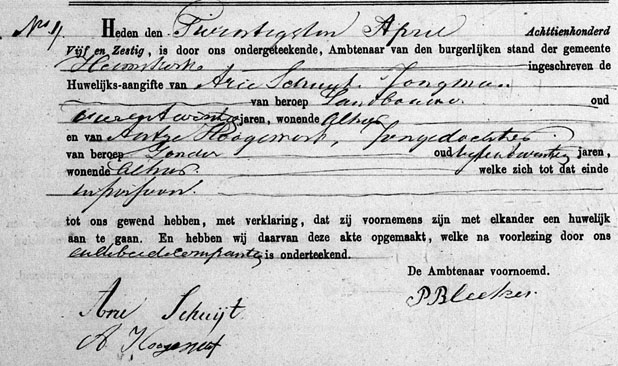 No. 4. Heden den Twentigsten April Achttienhonderd
Vijf en Zestig, is door ons ondergeteekende, Ambtenaar van den burgerlijken stand der gemeente
Heemskerk ingeschreven de
Huwelijks-aangifte van Arie Schuyt Jongman
van beroep Landbouwer oud
jaren, wonende Alhier
en van Aaltje Hoogewerf, Jongedochter
van beroep Zonder oud jaren,
wonende Alhier welke zich tot dat einde
in persoon
tot ons gewend hebben, met verklaring, dat zij voornemens zijn met elkander een huwelijk
aan te gaan. En hebben wij daarvan deze akte opgemaakt, welke na voorlezing door ons
en beide de comparanten is onderteekend.
De Ambtenaar voornoemd.
P Bleeker
Arie Schuijt
A Hoogewerf